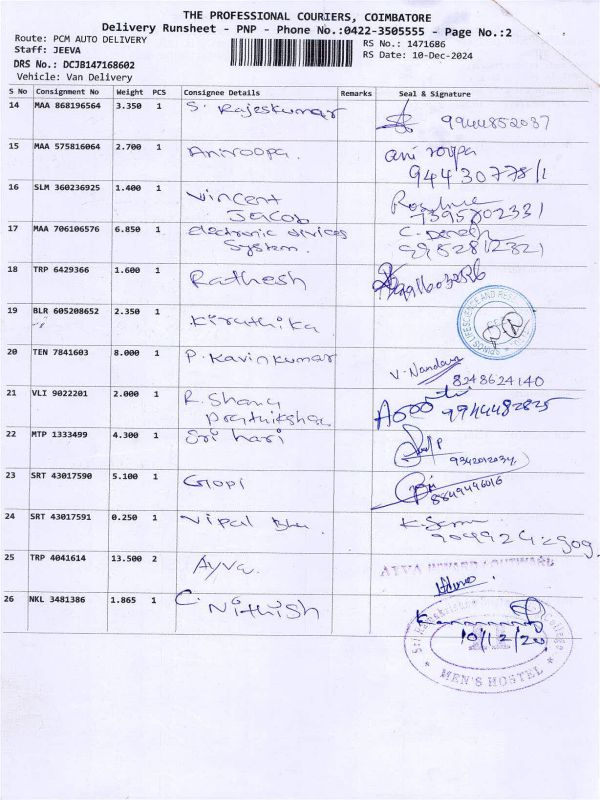 THE PROFESSIONAL COURIERS, COIMBATORE
Delivery Runsheet - PNP - Phone No.:0422-3505555 - Page No.:2
Route: PCM AUTO DELIVERY
RS No.: 1471686
Staff: JEEVA
RS Date: 10-Dec-2024
DRS No.: DCJB147168602
Vehicle: Van Delivery
S No Consignment No Weight PCS Consignee Details Remarks Seal & Signature
14 MAA 868196564 3.350 1 S. Rajeskumar 9944852037
15 MAA 575816064 2.700 1 Aniroopa. ani roopa
94430778/1
16 SLM 360236925 1.400 1 Vincent
Jacob 7395802331
17 MAA 706106576 6.850 1 electronic divices
System. 9952812321
18 TRP 6429366 1.600 1 Rathesh
19 BLR 605208652 2.350 1 Kiruthika
20 TEN 7841603 8.000 1 P. Kavinkumar V. Nandara
8248624140
21 VLI 9022201 2.000 1 R. Shang
Prathiksha 9944482825
22 MTP 1333499 4.300 1 Sri hari
9342012034
23 SRT 43017590 5.100 1 Gopi
8849496016
24 SRT 43017591 0.250 1 Vipal
25 TRP 4041614 13.500 2 Ayva.
26 NKL 3481386 1.865 1 C. Nithish
10/12/20
MEN'S HOSTEL